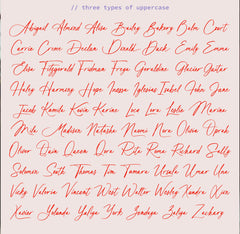 // three types of uppercase
Abigail Almond Alisa Bailey Bakery Balm Court
Carrie Creme Declan Dizall Duck Emily Emma
Elisa Fitzgerald Fridman Freya Geraldine Glacier Guitar
Haley Harmony Hope Inessa Iglesias Isabel John Jane
Jacob Kamile Kevin Karine Luce Lora Leslie Marina
Mila Madison Natasha Naomi Nora Olivia Oprah
Oliver Dain Queen Qora Rita Rome Richard Sally
Solomia South Thomas Tim Tamara Ursula Umar Una
Vicky Valeria Vincent West Walter Wesley Xandra Xica
Xavier Yolanda Yaliya York Zendaya Zaliya Zachary